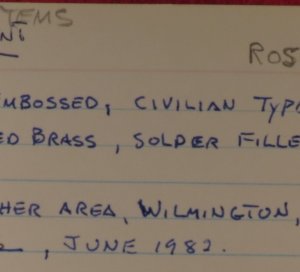 TEMS
ROS
EMBOSSED, CIVILIAN TYPE
ED BRASS, SOLDER FILLE
HER AREA, WILMINGTON,
JUNE 1982.